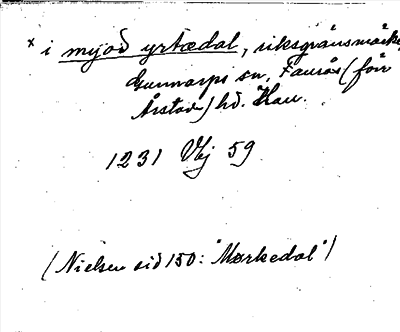 × i myoð yrtædal, riksgränsmärke,
Gunnarps sn, Faurås (förr
Årstad) hd. Hall.
1231 Vbj 59
(Nielsen sid 150: "Mørkedal")